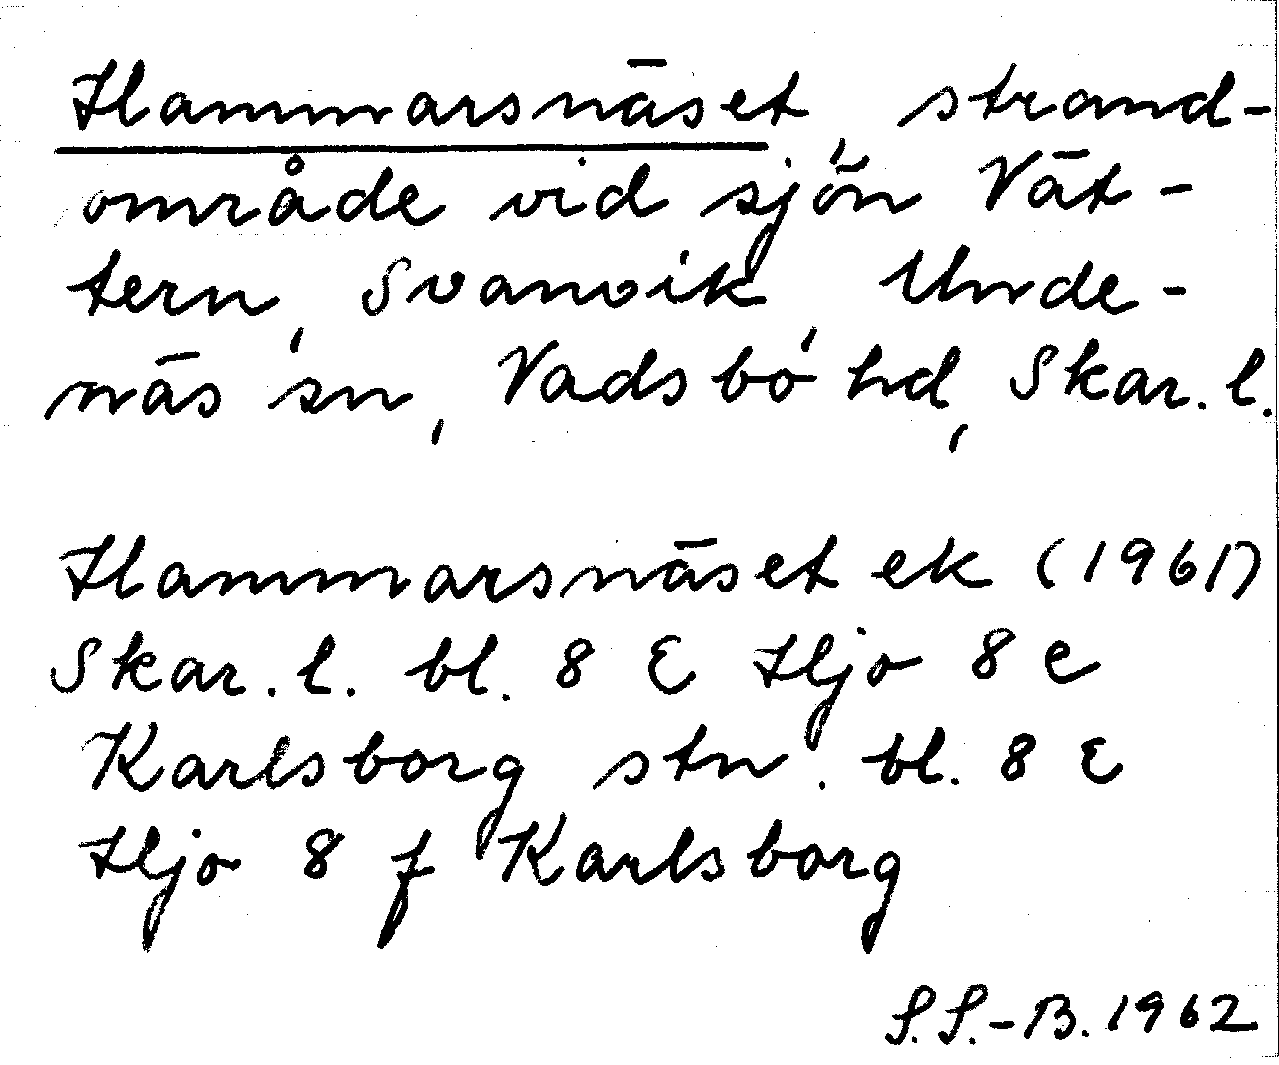 Hammarsnäset, strand-
område vid sjön Vät-
tern, Svanvik, Unde-
näs sn, Vadsbo hd, Skar. l.
Hammarsnäset ek (1961)
Skar. l. bl. 8 E Hjo 8 e
Karlsborg stn. bl. 8 E
Hjo 8 f Karlsborg
S.S.-B. 1962